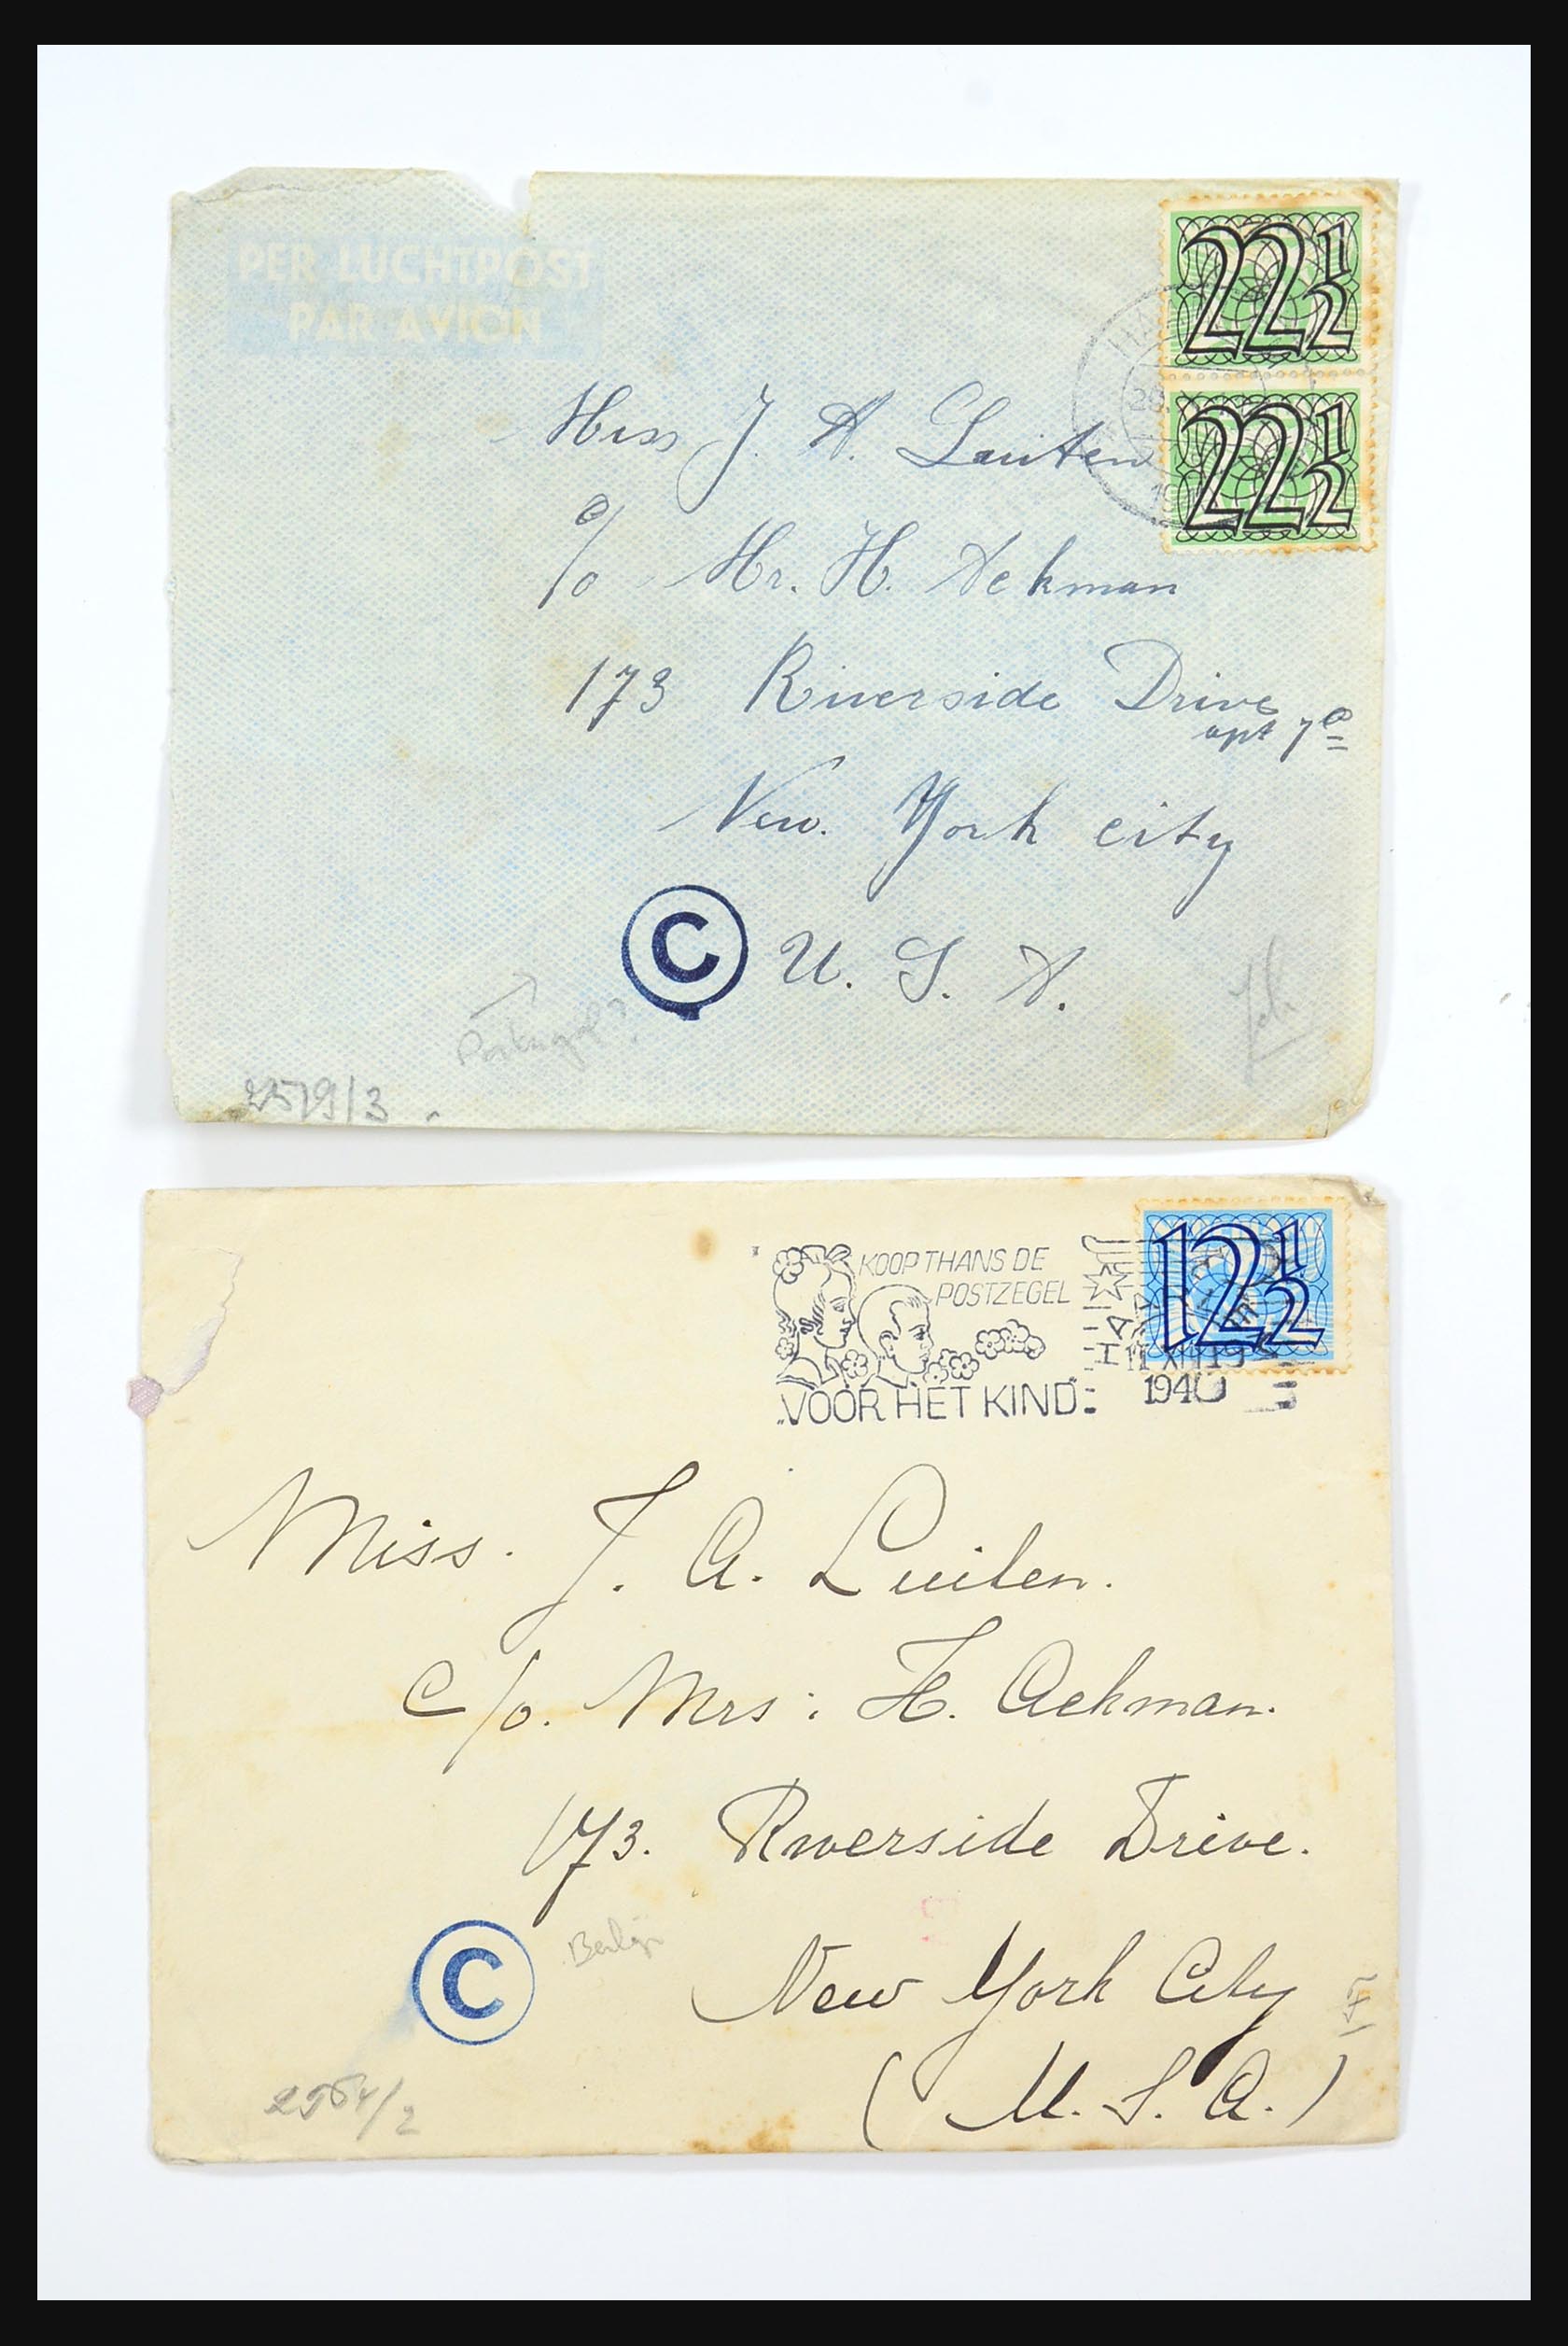 PER LUCHTPOST
PAR AVION
22½
22½
Miss J. A. Luiten
c/o Mr. H. Aekman
173 Riverside Drive
apt 7e
New York city
C U. S. A.
Portugal?
2519/3
KOOP THANS DE
POSTZEGEL
VOOR HET KIND
12½
1940
Miss. J. A. Luiten.
c/o. Mrs: H. Aekman.
173. Riverside Drive.
C
New York City
(U. S. A.)
2564/2